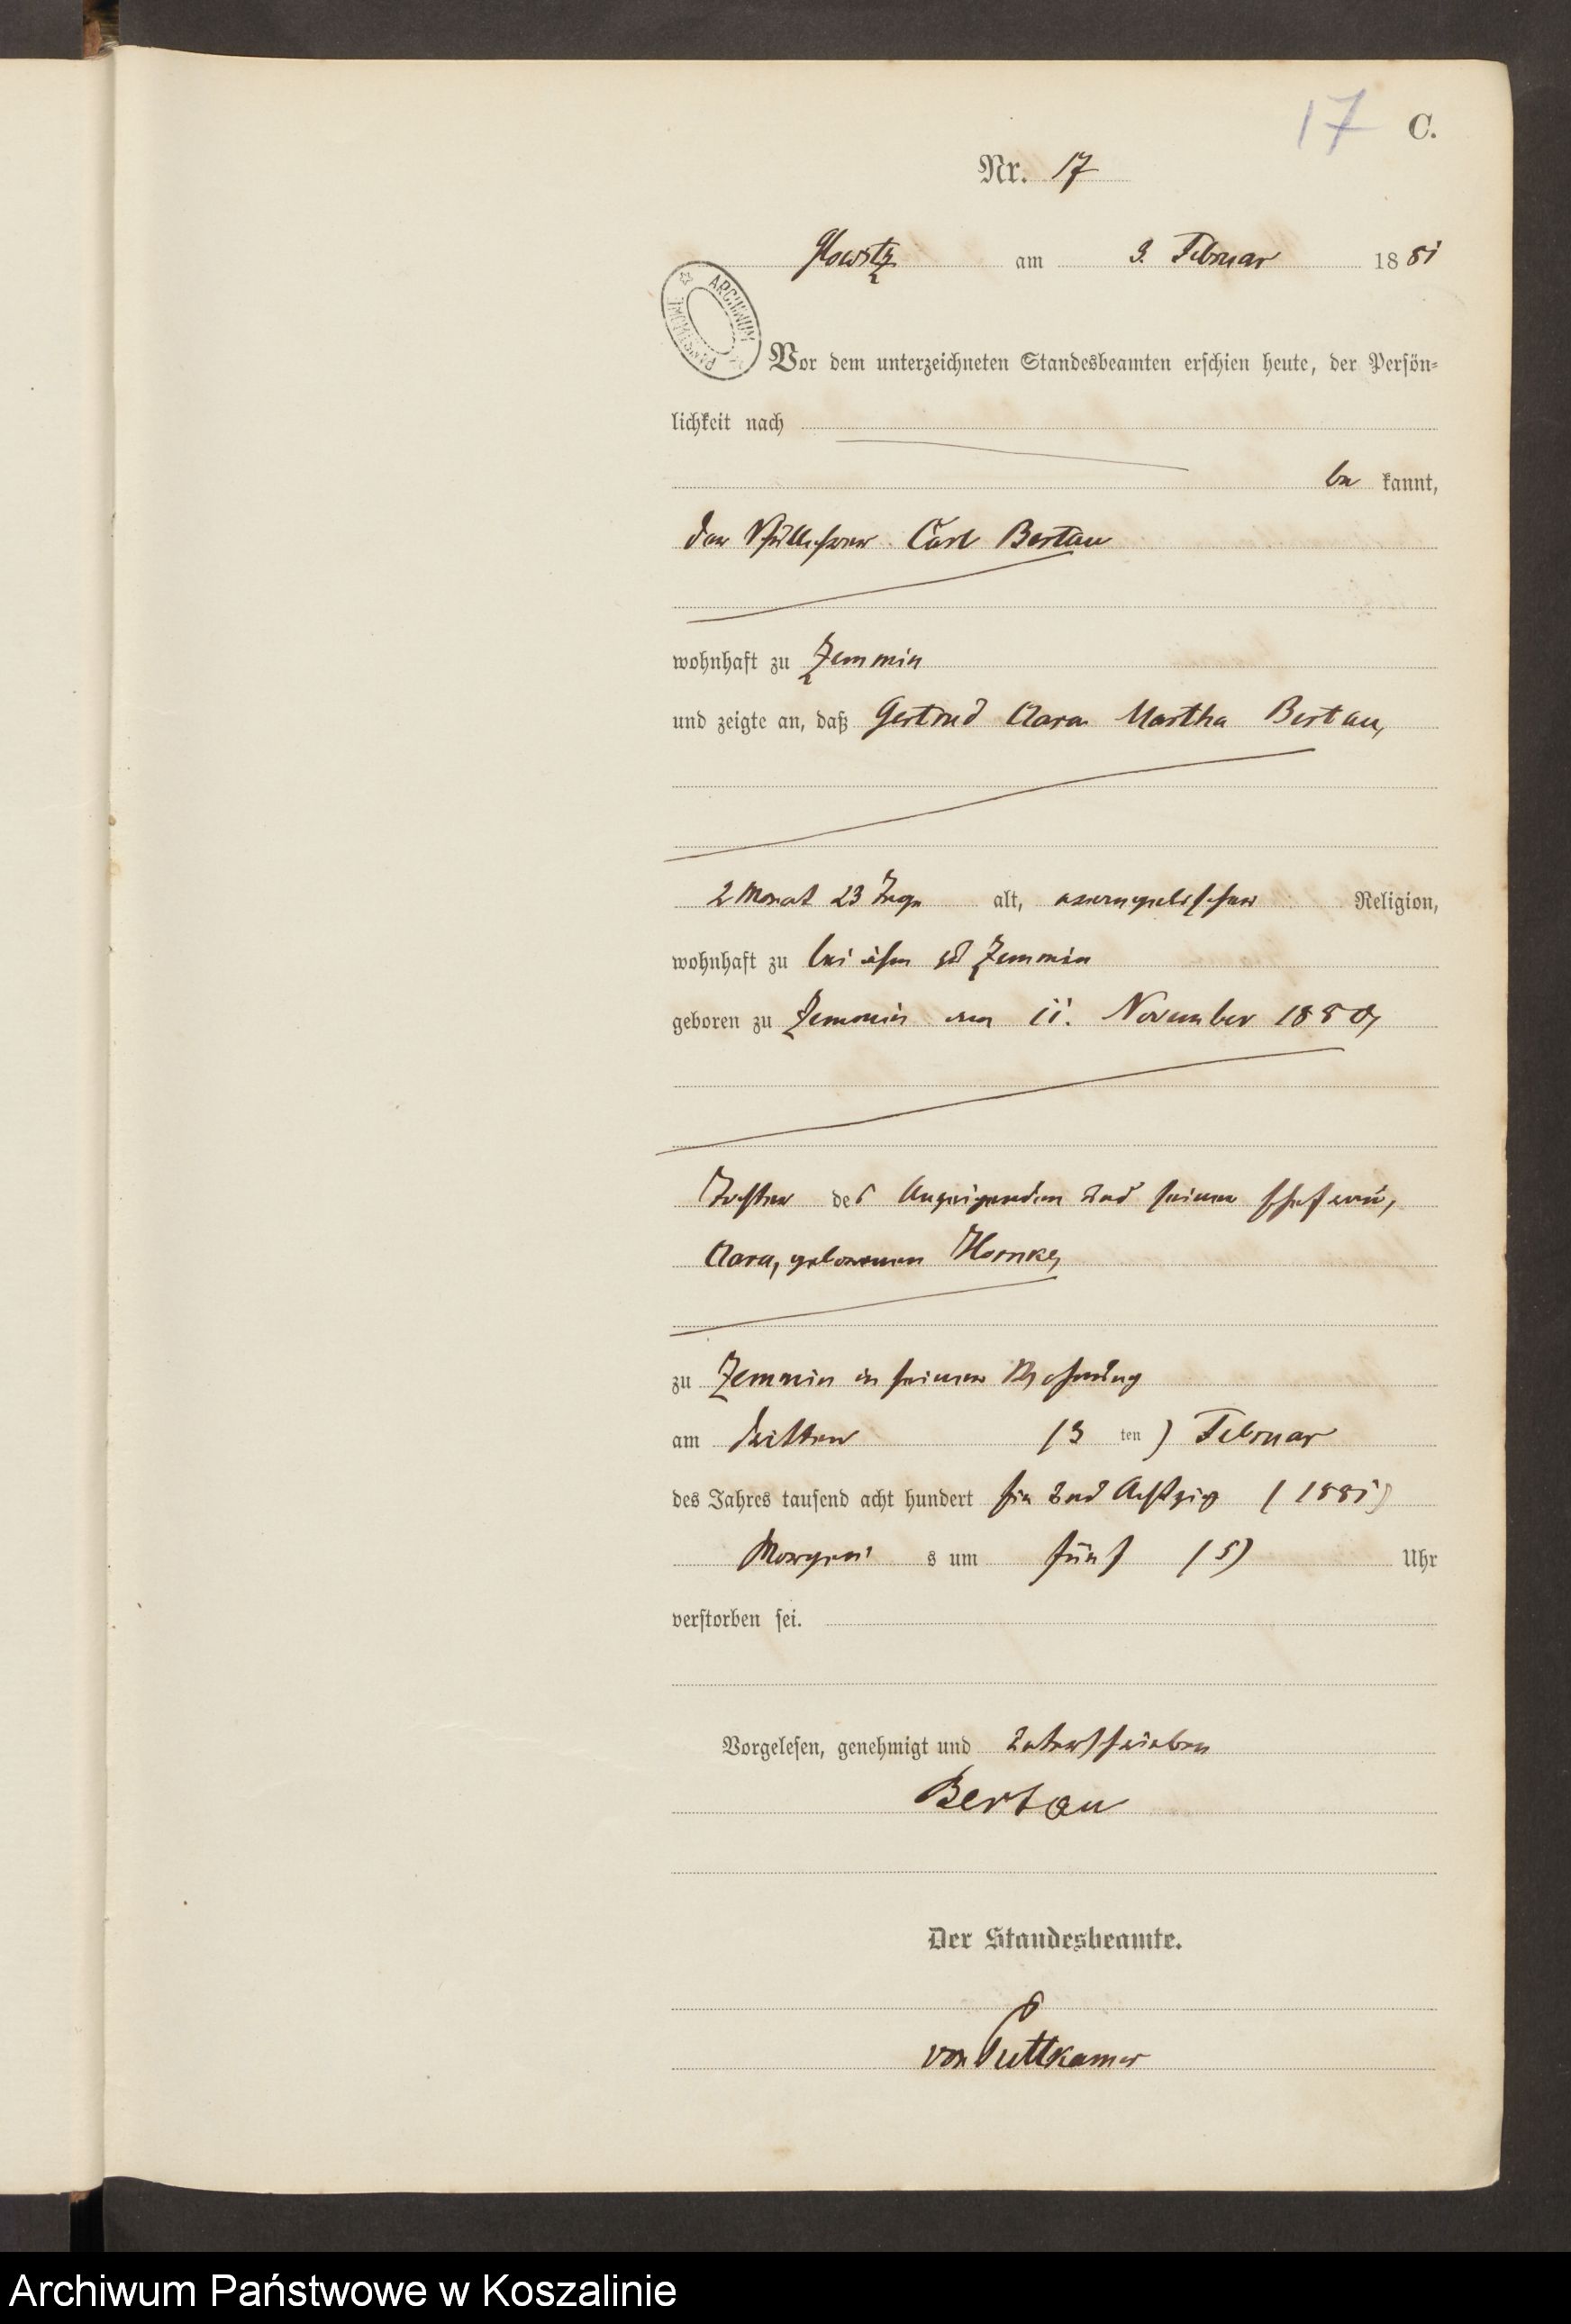 17 C.
Nr. 17
Glowitz am 3. Februar 1881
ARCHIWUM PAŃSTWOWE
Vor dem unterzeichneten Standesbeamten erschien heute, der Persön-
lichkeit nach
be kannt,
der Carl Bertau
wohnhaft zu Zemmin
und zeigte an, daß Gertrud Clara Martha Bertau,
2 Monat 23 Tage alt, evangelischer Religion,
wohnhaft zu bei ihm zu Zemmin
geboren zu Zemmin am 11. November 1880,
Tochter des Anzeigenden und seiner Ehefrau,
Clara, geborenen Hornke,
zu Zemmin in seiner Wohnung
am dritten (3 ten) Februar
des Jahres tausend acht hundert ein und Achtzig (1881)
Morgens um fünf (5) Uhr
verstorben sei.
Vorgelesen, genehmigt und unterschrieben
Bertau
Der Standesbeamte.
von Puttkamer
Archiwum Państwowe w Koszalinie